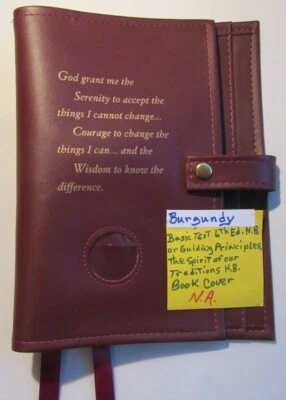 God grant me the
Serenity to accept the
things I cannot change...
Courage to change the
things I can... and the
Wisdom to know the
difference.
Burgundy
Basic Text 6th Ed. H.B.
or Guiding Principles,
the Spirit of our
Traditions H.B.
Book Cover
N.A.